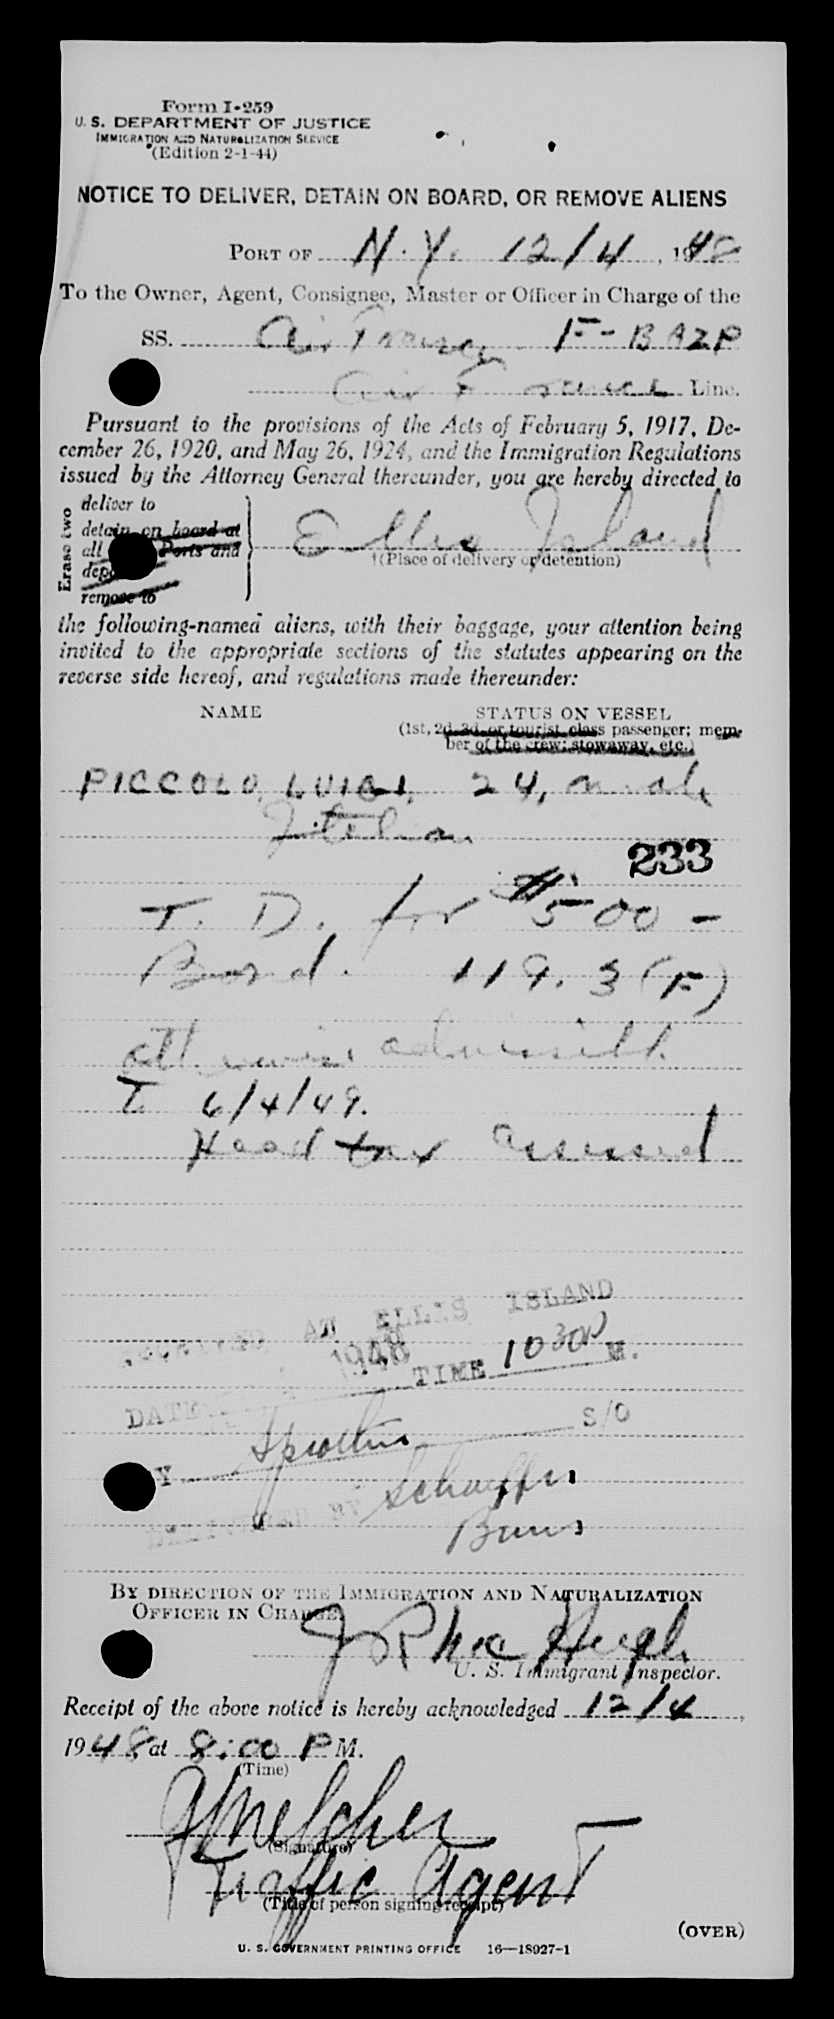 Form I-259
U. S. DEPARTMENT OF JUSTICE
IMMIGRATION AND NATURALIZATION SERVICE
(Edition 2-1-44)
NOTICE TO DELIVER, DETAIN ON BOARD, OR REMOVE ALIENS
PORT OF N. Y. 12/4, 1948
To the Owner, Agent, Consignee, Master or Officer in Charge of the
SS. Air France F-BAZP
Air France Line.
Pursuant to the provisions of the Acts of February 5, 1917, De-
cember 26, 1920, and May 26, 1924, and the Immigration Regulations
issued by the Attorney General thereunder, you are hereby directed to
Erase two
deliver to
detain on board at
all Ports and
remove to
Ellis Island
(Place of delivery or detention)
the following-named aliens, with their baggage, your attention being
invited to the appropriate sections of the statutes appearing on the
reverse side hereof, and regulations made thereunder:
NAME STATUS ON VESSEL
(1st, 2d, 3d, or tourist class passenger; mem-
ber of the crew; stowaway, etc.)
PICCOLO, LUIGI, 24, male
Italian
233
T. D. for $500 -
Bond. 119.3(F)
otherwise admissible
T 6/4/49.
Head tax assessed
RECEIVED AT ELLIS ISLAND
1948 TIME 10 30 P M.
DATE
S/O
Y
DELIVERED BY Schaeffer
Burns
BY DIRECTION OF THE IMMIGRATION AND NATURALIZATION
OFFICER IN CHARGE
U. S. Immigrant Inspector.
Receipt of the above notice is hereby acknowledged 12/4,
1948 at 8:00 P M.
(Time)
(Signature)
Traffic Agent
(Title of person signing receipt)
(OVER)
U. S. GOVERNMENT PRINTING OFFICE 16—18927-1